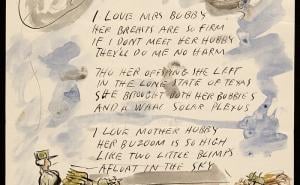 I LOVE MRS BUBBY
HER BREASTS ARE SO FIRM
IF I DON'T MEET HER HUBBY
THEY'LL DO ME NO HARM
THO HER OFFSPRING SHE LEFT
IN THE LONE STATE OF TEXAS
SHE BROUGHT BOTH HER BUBBIES
AND A WHAC SOLAR PLEXUS
I LOVE MOTHER HUBBY
HER BUZOOM IS SO HIGH
LIKE TWO LITTLE BLIMPS
AFLOAT IN THE SKY